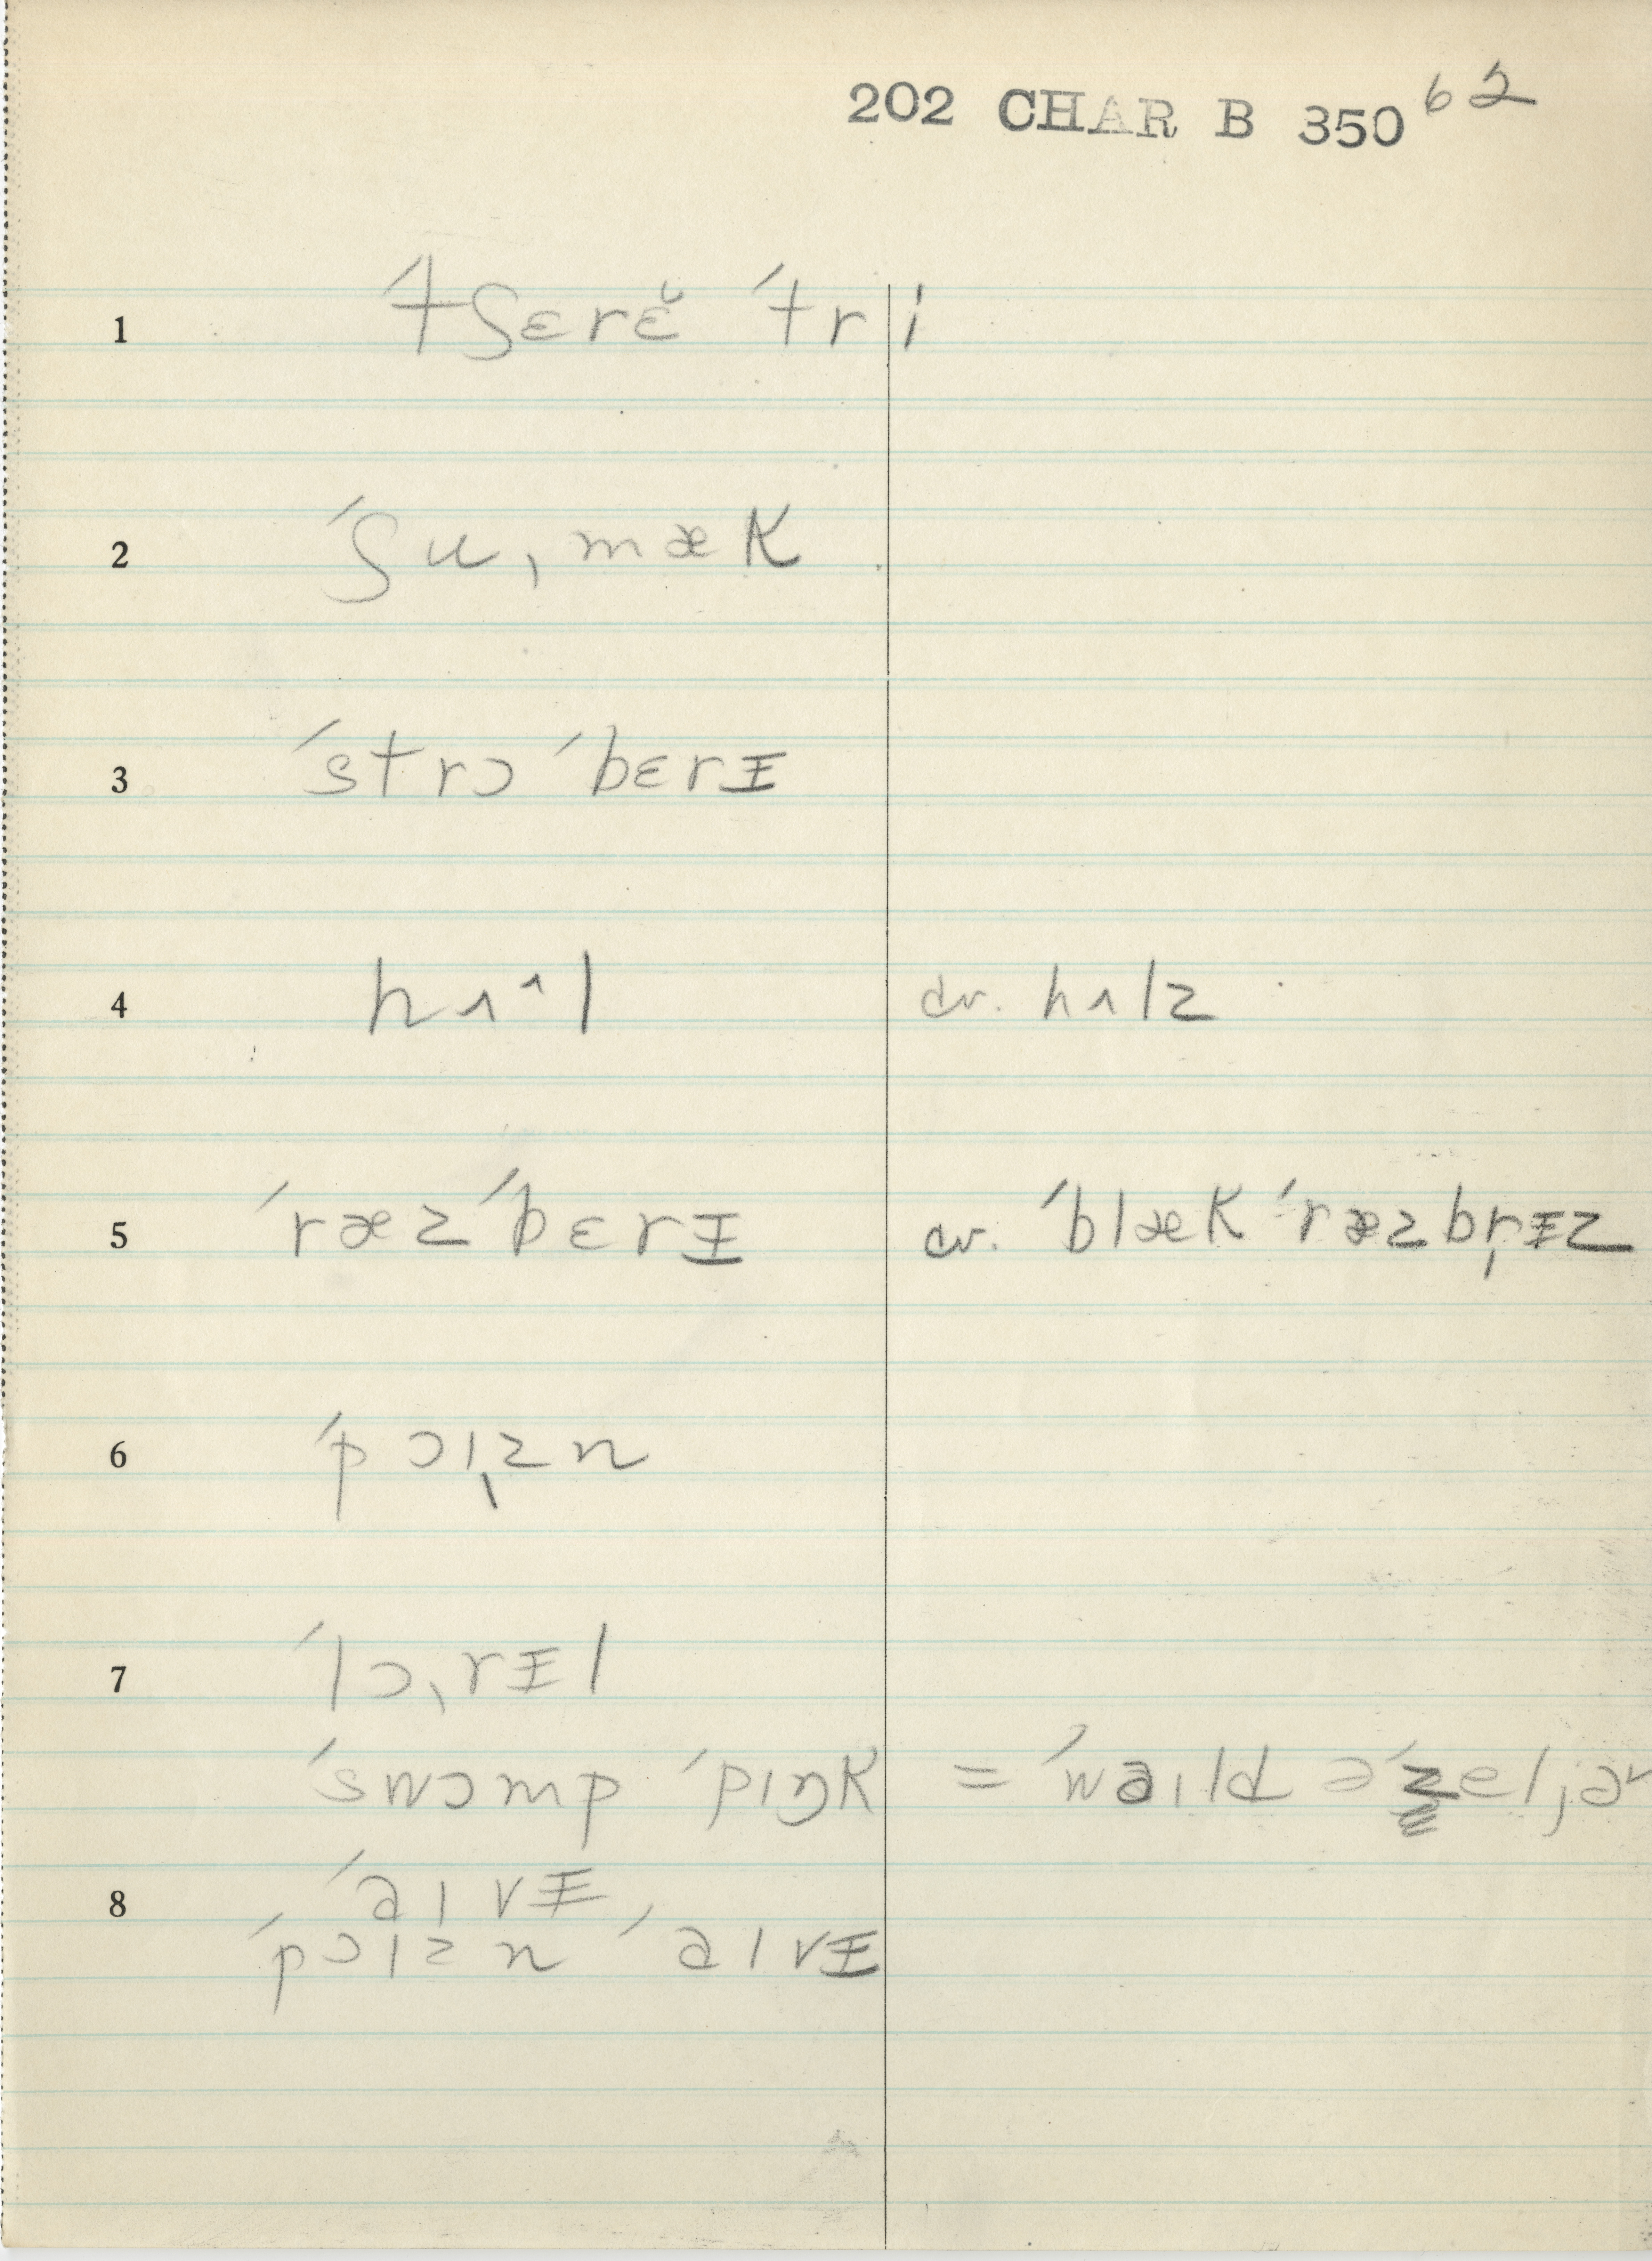 202 CHAR B 350 62
1 ˊtʃɛrɛ̆ ˊtri
2 ˊʃuˌmæk
3 ˊstrɔ ˊbɛrɪ̵
4 hʌ^l cv. hʌlz
5 ˊræzˊbɛrɪ̵ cv. ˊblæk ˊræzbr̩ɪ̵z
6 ˊpɔɪˌzn
7 ˊlɔˌrɪ̵l
ˊswɔmp ˊpɪŋk = ˊwaɪld əˊzeljə
8 ˊaɪvɪ̵,
ˊpɔɪzn ˊaɪvɪ̵